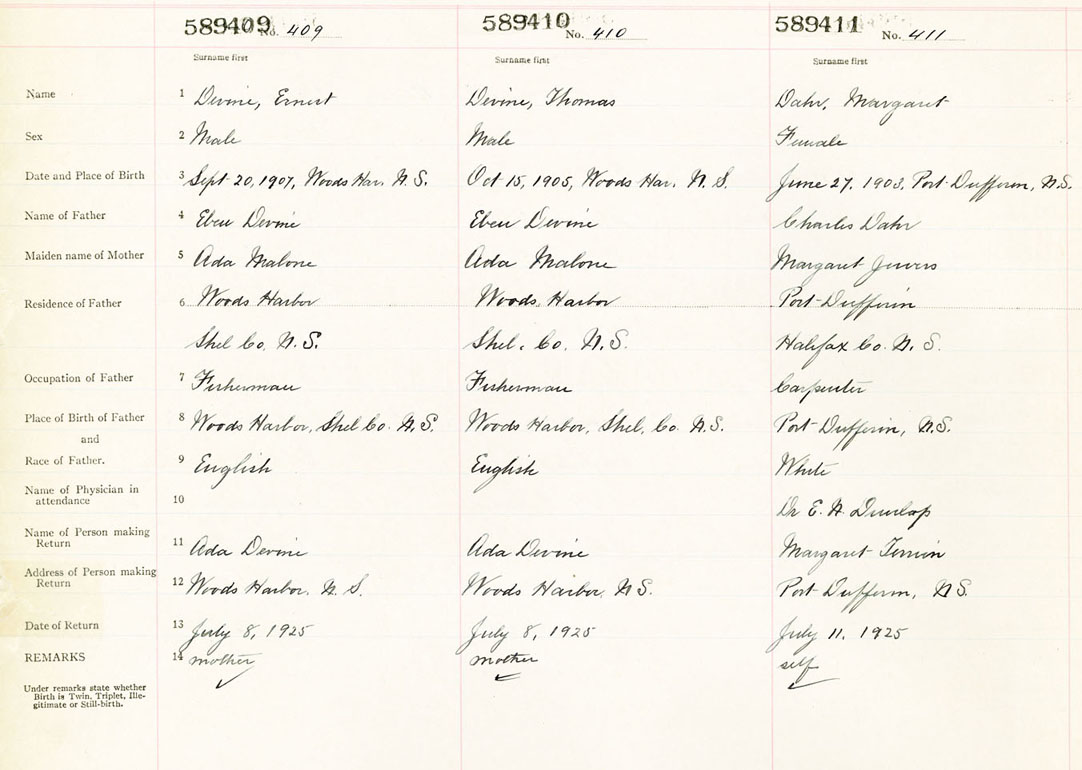 589409 No. 409 589410 No. 410 589411 No. 411
Surname first Surname first Surname first
Name 1 Devine, Ernest Devine, Thomas Dahr, Margaret
Sex 2 Male Male Female
Date and Place of Birth 3 Sept 20, 1907, Woods Har. N.S. Oct 15, 1905, Woods Har. N.S. June 27, 1903, Port Dufferin, N.S.
Name of Father 4 Eben Devine Eben Devine Charles Dahr
Maiden name of Mother 5 Ada Malone Ada Malone Margaret Jewers
Residence of Father 6 Woods Harbor Woods Harbor Port Dufferin
Shel Co. N.S. Shel. Co. N.S. Halifax Co. N.S.
Occupation of Father 7 Fisherman Fisherman Carpenter
Place of Birth of Father 8 Woods Harbor, Shel Co. N.S. Woods Harbor, Shel. Co. N.S. Port Dufferin, N.S.
and
Race of Father. 9 English English White
Name of Physician in
attendance 10 Dr E. A. Dunlop
Name of Person making
Return 11 Ada Devine Ada Devine Margaret
Address of Person making
Return 12 Woods Harbor. N.S. Woods Harbor, N.S. Port Dufferin, N.S.
Date of Return 13 July 8, 1925 July 8, 1925 July 11, 1925
REMARKS 14 mother mother self
Under remarks state whether
Birth is Twin, Triplet, Ille-
gitimate or Still-birth.